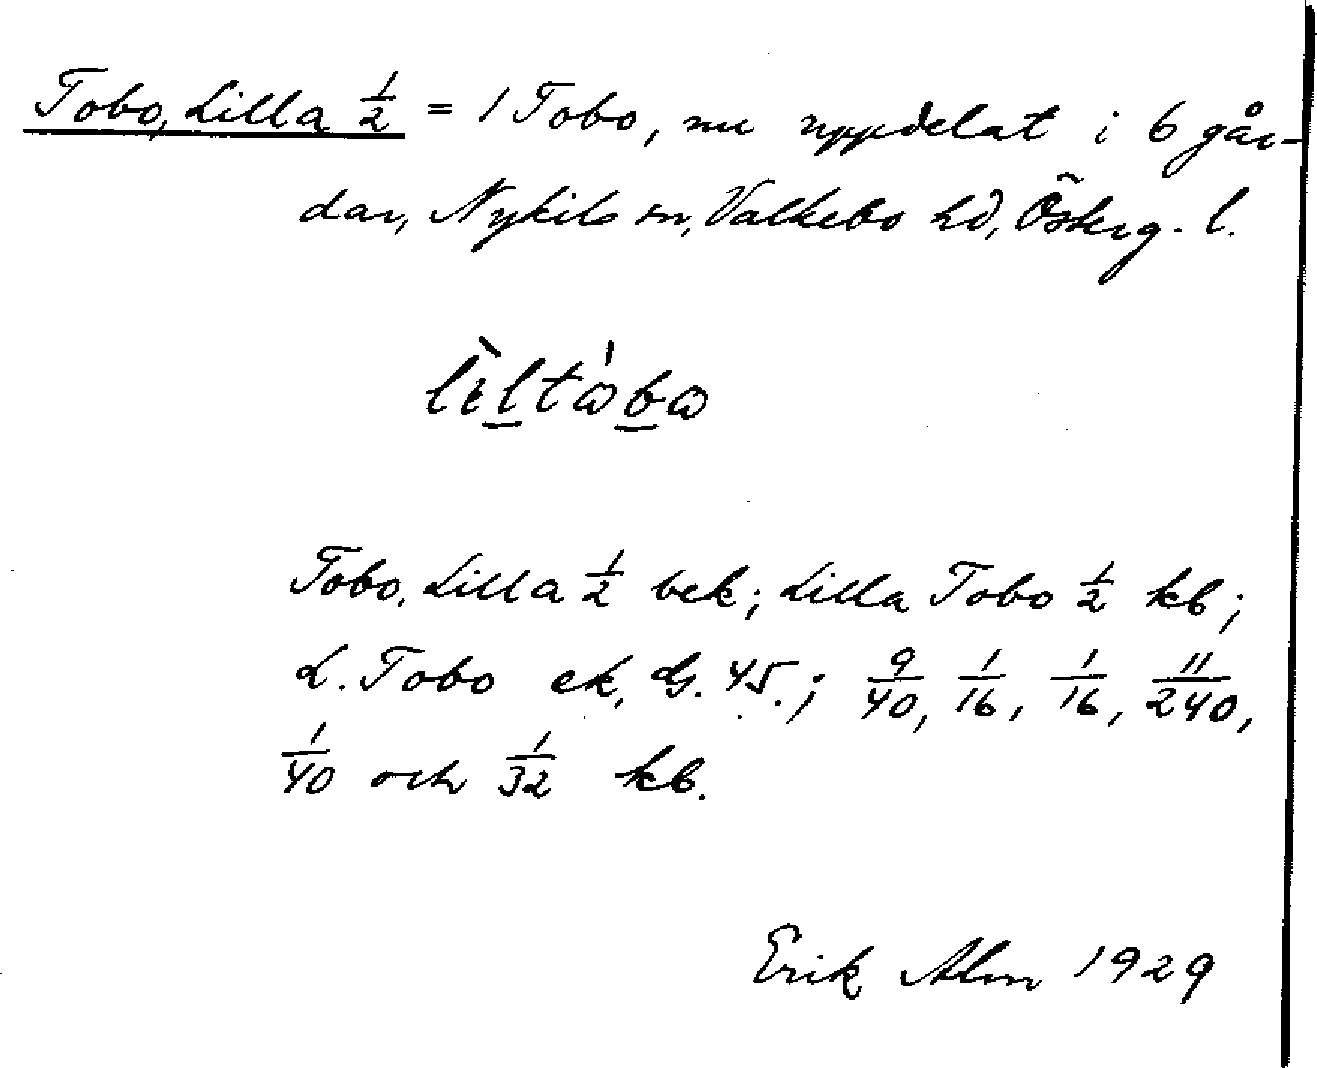 Tobo, Lilla 1/2 = 1 Tobo, nu uppdelat i 6 går-
dar, Nykils sn, Valkebo hd, Österg. l.
lìltω̍bω
Tobo, Lilla 1/2 bek; Lilla Tobo 1/2 kb;
L. Tobo ek, G. 45.; 9/40, 1/16, 1/16, 11/240,
1/40 och 1/32 kb.
Erik Alm 1929